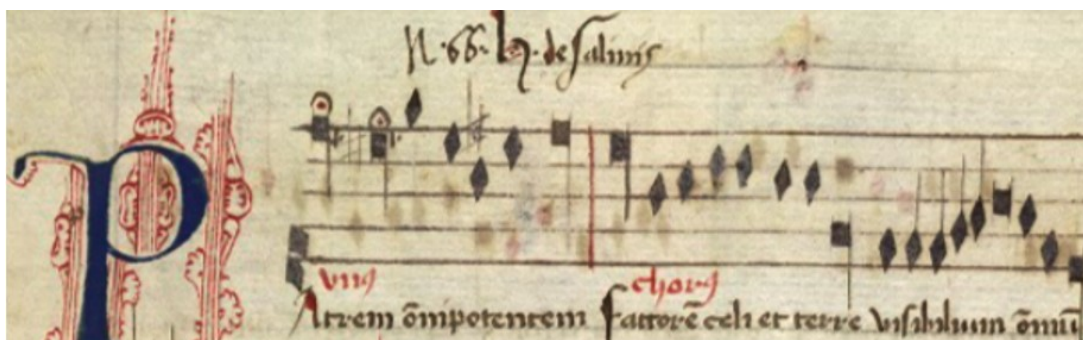 N. 66. h. de salinis
vnus chorus
Patrem õmipotentem factorẽ celi et terre visibilium õmiũ